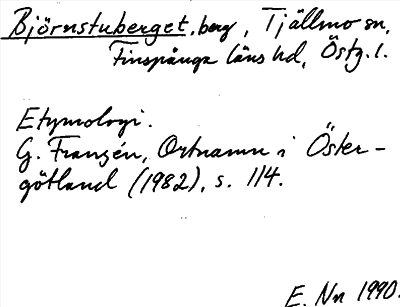 Björnstuberget, berg, Tjällmo sn,
Finspånga läns hd, Östg. l.
Etymologi.
G. Franzén, Ortnamn i Öster-
götland (1982), s. 114.
E. Nn 1990.